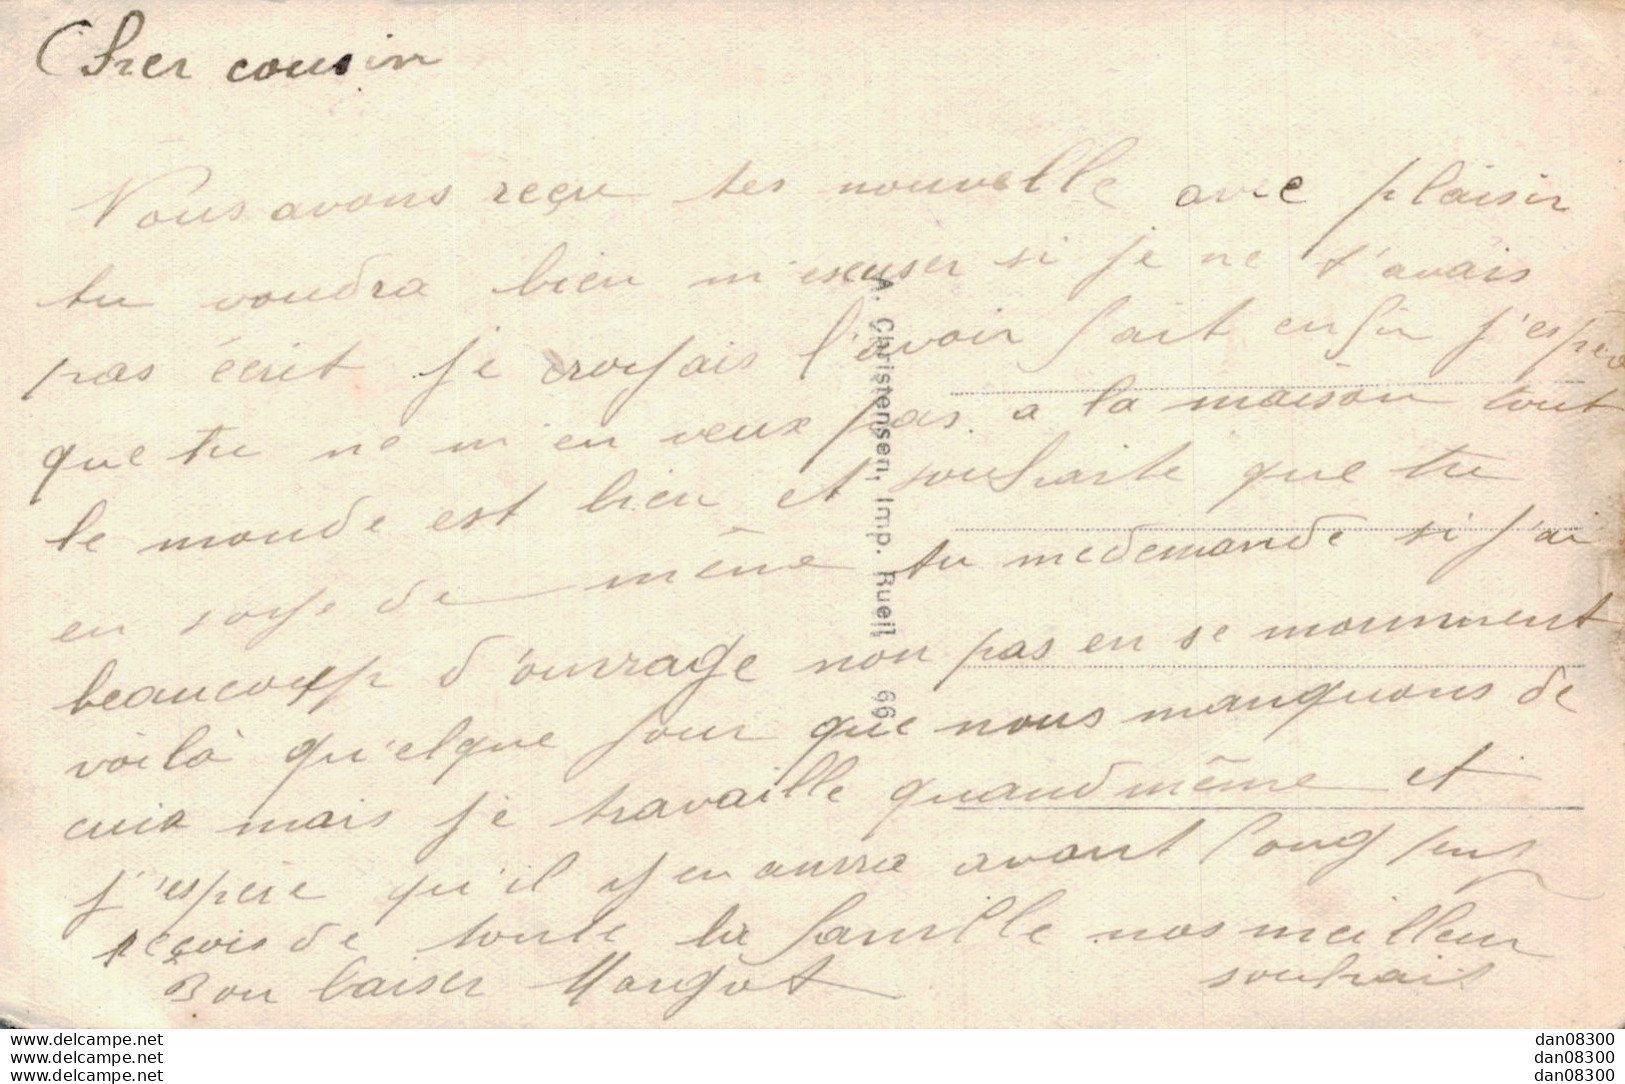 Cher cousin
Nous avons reçu tes nouvelle avec plaisir
tu voudra bien m'excuser si je ne t'avais
pas écrit je croyais l'avoir fait enfin j'espère
que tu ne m'en veux pas. a la maison tout
le monde est bien et souhaite que tu
en soye de même tu me demande si j'ai
beaucoup d'ouvrage non pas en se moument
voilà qu'elque jour que nous manquons de
cuir mais je travaille quand même et
j'espère qu'il y en aura avant long
reçois de toute la famille nos meilleur
souhait
Bon baiser Margot
A. Christensen, Imp. Rueil, 66
www.delcampe.net
www.delcampe.net
www.delcampe.net
dan08300
dan08300
dan08300